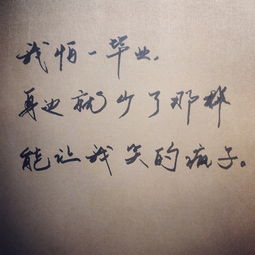 我怕一毕业,
身边就少了那样
能让我笑的疯子。